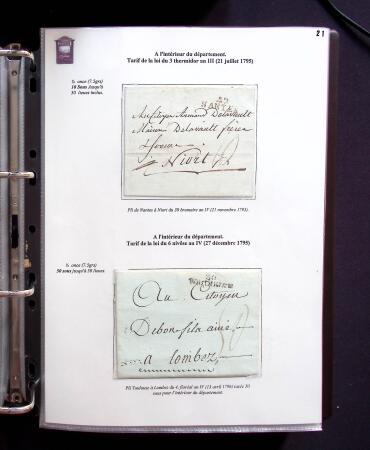 21
A l'intérieur du département.
Tarif de la loi du 3 thermidor an III (21 juillet 1795)
¼ once (7,5grs)
10 Sous jusqu'à
50 lieues inclus.
NANTES
Armand Delavault
Delavault frères
Niort
Pli de Nantes à Niort du 30 brumaire an IV (21 novembre 1795).
A l'intérieur du département.
Tarif de la loi du 6 nivôse an IV (27 décembre 1795)
¼ once (7,5grs)
50 sous jusqu'à 50 lieues.
Au Citoyen
Debon fils ainé
a Lombez
Pli Toulouse à Lombez du 4 floréal an IV (13 avril 1796) taxée 50
sous pour l'intérieur du département.